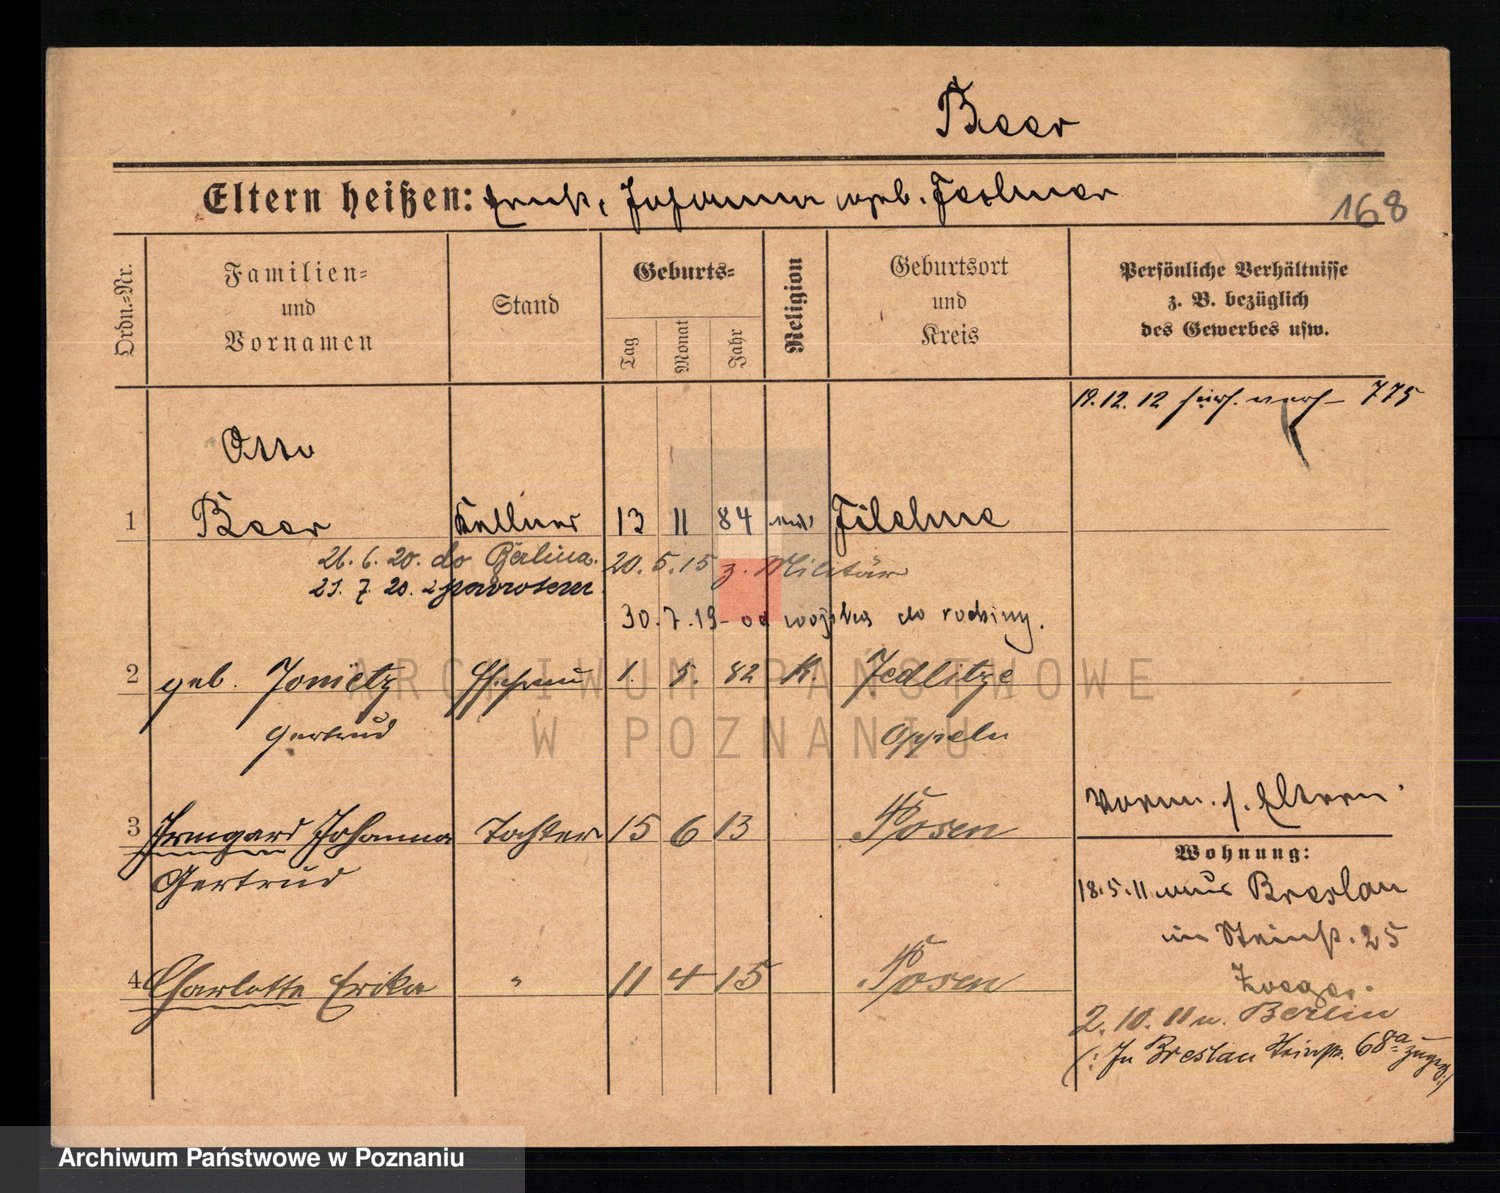 Beer
Eltern heißen: Ernst, Johanna geb. Feelmer
168
Ordn.-Nr.
Familien- und Vornamen
Stand
Geburts-
Tag
Monat
Jahr
Religion
Geburtsort und Kreis
Persönliche Verhältnisse z. B. bezüglich des Gewerbes usw.
19.12.12 775
Otto
1 Beer Kellner 13 11 84 Filehne
26. 6. 20. do Berlina. 20. 5. 15 z. Militär
21. 7. 20. z powrotem
30. 7. 19 - od wojska do rodziny.
2 geb. Jonietz Ehefrau 1. 5. 82 K. Jedlitze
Gertrud Oppeln
Vorm. s. Eltern.
3 Irmgard Johanna Tochter 15 6 13 Posen
Gertrud
Wohnung:
18.5.11 aus Breslau
Steinstr. 25
4 Charlotte Erika " 11 4 15 Posen
2. 10. 11 n. Berlin
(: In Breslau Steinstr. 68a zugez. :)
ARCHIWUM PAŃSTWOWE
W POZNANIU
Archiwum Państwowe w Poznaniu